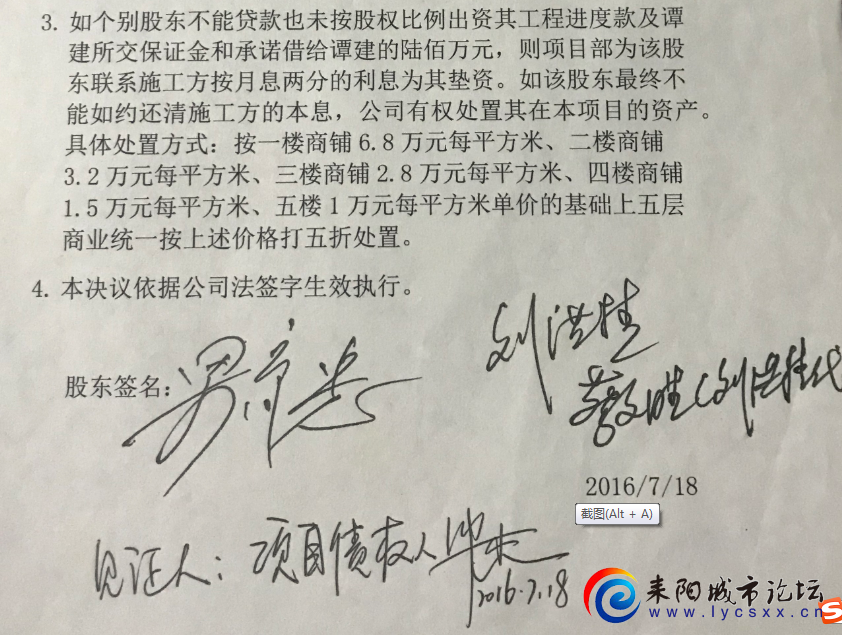 3. 如个别股东不能贷款也未按股权比例出资其工程进度款及谭
建所交保证金和承诺借给谭建的陆佰万元，则项目部为该股
东联系施工方按月息两分的利息为其垫资。如该股东最终不
能如约还清施工方的本息，公司有权处置其在本项目的资产。
具体处置方式：按一楼商铺 6.8 万元每平方米、二楼商铺
3.2 万元每平方米、三楼商铺 2.8 万元每平方米、四楼商铺
1.5 万元每平方米、五楼 1 万元每平方米单价的基础上五层
商业统一按上述价格打五折处置。
4. 本决议依据公司法签字生效执行。
刘洪桂
股东签名：
胜（刘洪桂代
2016/7/18
截图(Alt + A)
见证人：项目债权人
2016.7.18
耒阳城市论坛
www.lycsxx.cn